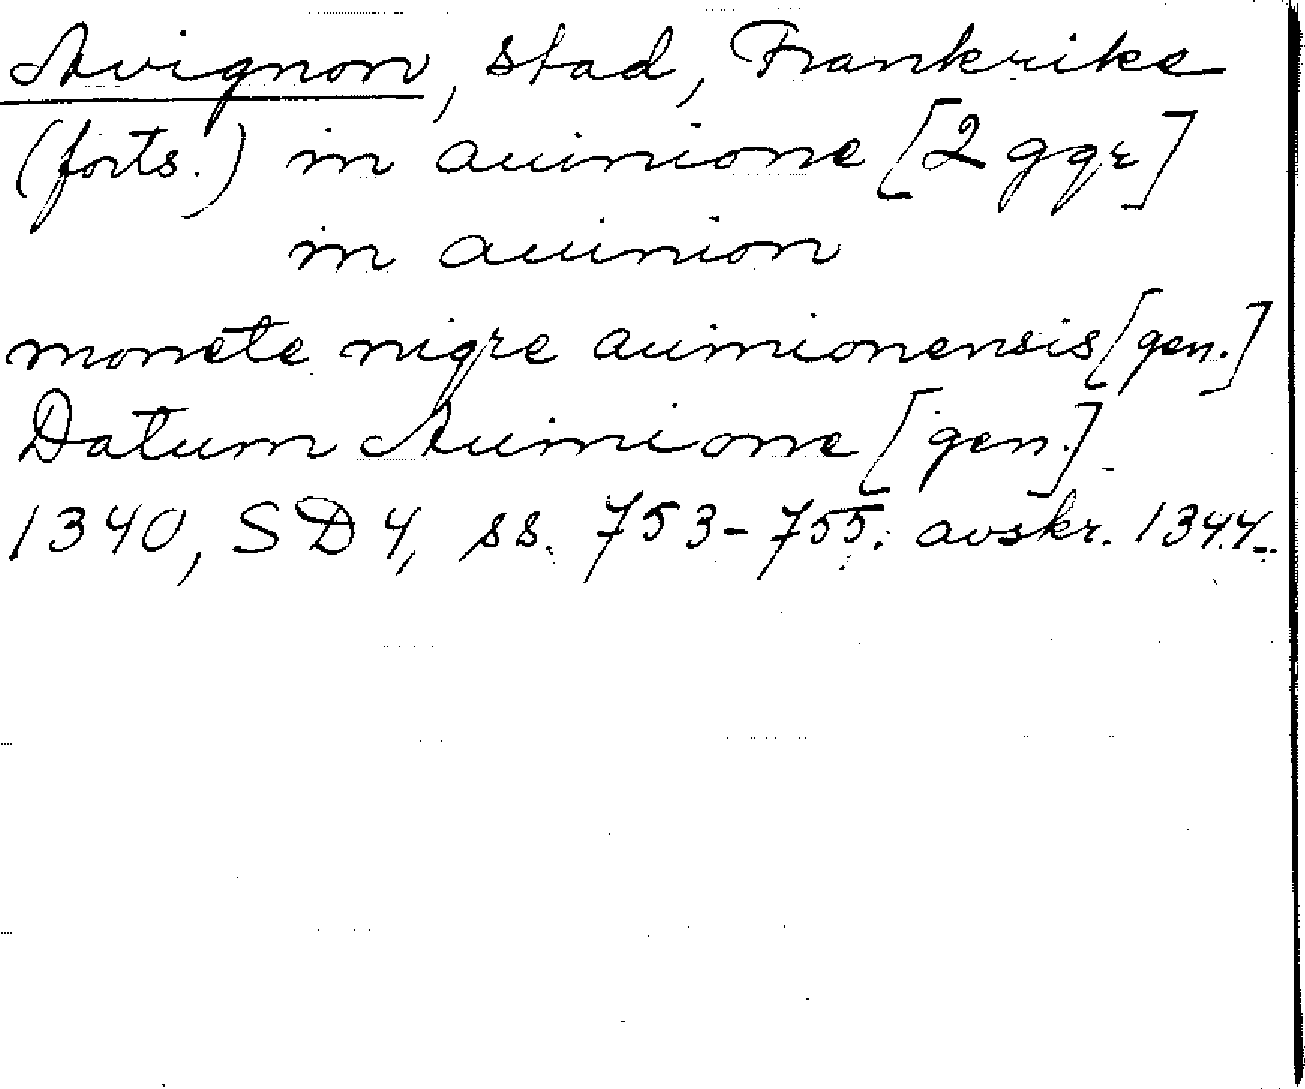 Avignon, stad, Frankrike
(forts.) in auinione [2 ggr]
in auinion
monete nigre auinionensis [gen.]
Datum Auinione [gen.]
1340, SD4, ss. 753-755. avskr. 1344.